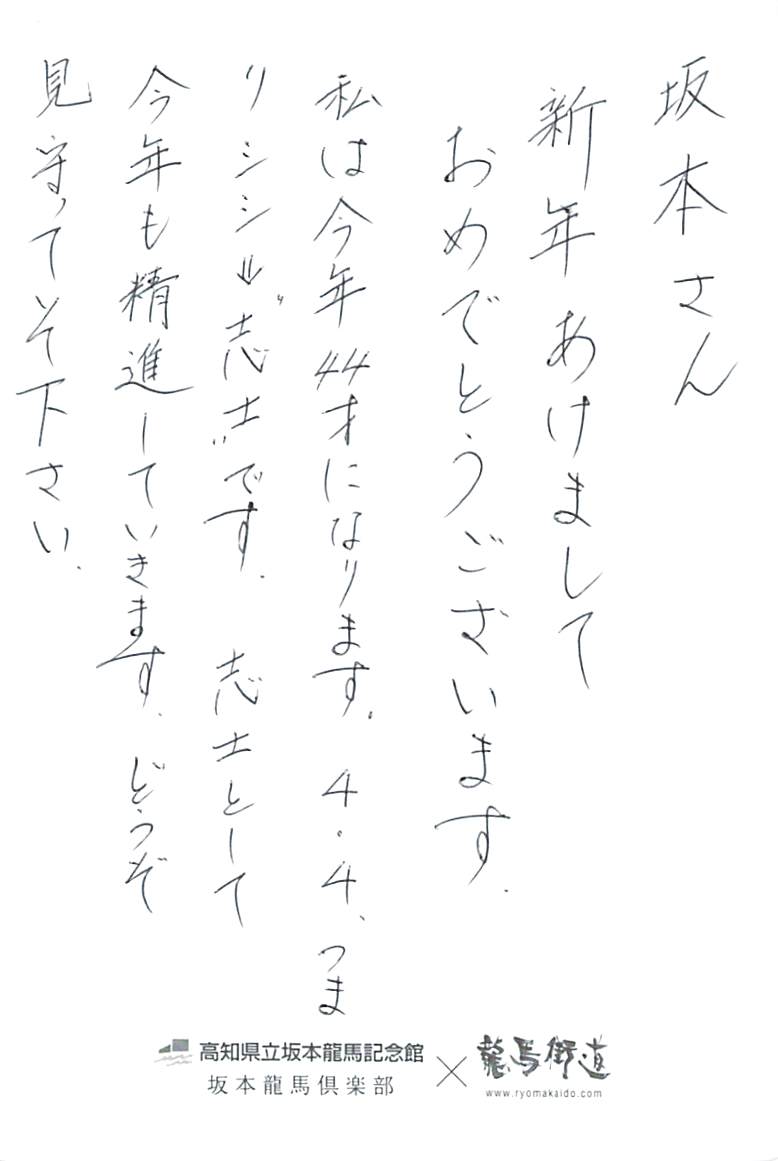 坂本さん
新年あけまして
おめでとうございます.
私は今年44才になります。4・4、つま
りシシ⇒"志士"です. 志士として
今年も精進していきます. どうぞ
見守ってて下さい.
高知県立坂本龍馬記念館
坂本龍馬倶楽部
×
龍馬街道
www.ryomakaido.com